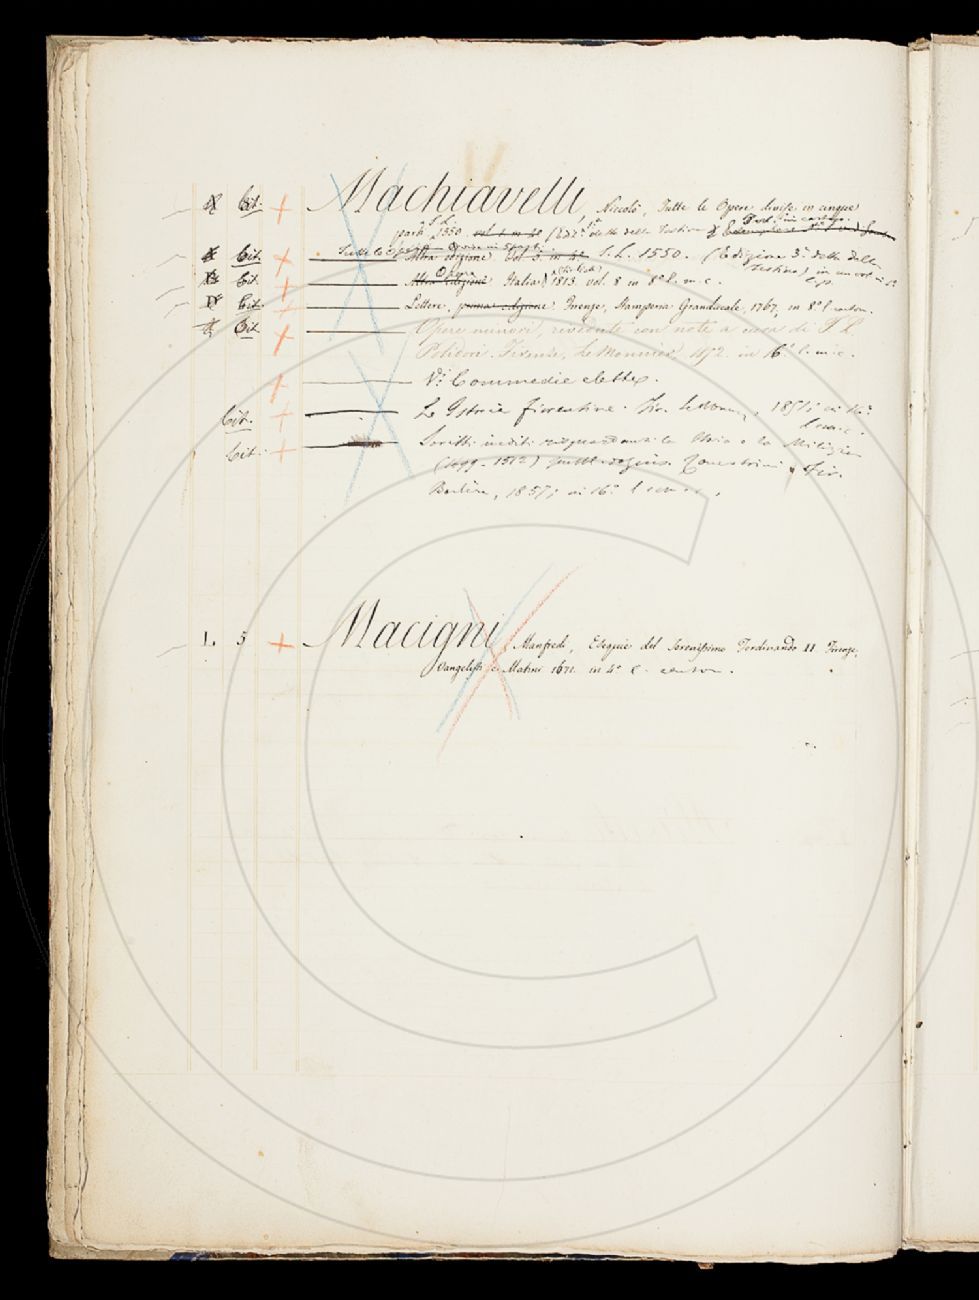 Cit. Machiavelli, Nicolò, Tutte le Opere divise in cinque
parti S.L. 1550. vol. 1 in 4º (Ediz.e 1ª detta della Testina
Cit. Altra edizione Vol. 5. in 4º S.L. 1550. (Edizione 3ª detta della
Testina) in un vol. in 4º
Cit. Altra edizione Opere Italia 1813. vol. 8 in 8º l. m. c.
Cit. Lettere, prima edizione. Firenze, Stamperia Granducale, 1767, in 8º l. carton.
Cit. Opere minori, rivedute con note a cura di F. L.
Polidori. Firenze, Le Monnier, 1852. in 16º l. m. c.
V. Commedie elette.
Cit. Le Istorie fiorentine. Fir. Le Monnier, 1851; in 16º
Cit. Scritti inediti risguardanti la Storia e la Milizia
(1499-1512) Canestrini, Fir.
Barbèra, 1857; in 16º
L. 5 Macigni, Manfredi, Esequie del Serenissimo Ferdinando II Firenze,
Vangelisti e Matini 1671. in 4º l. carton.